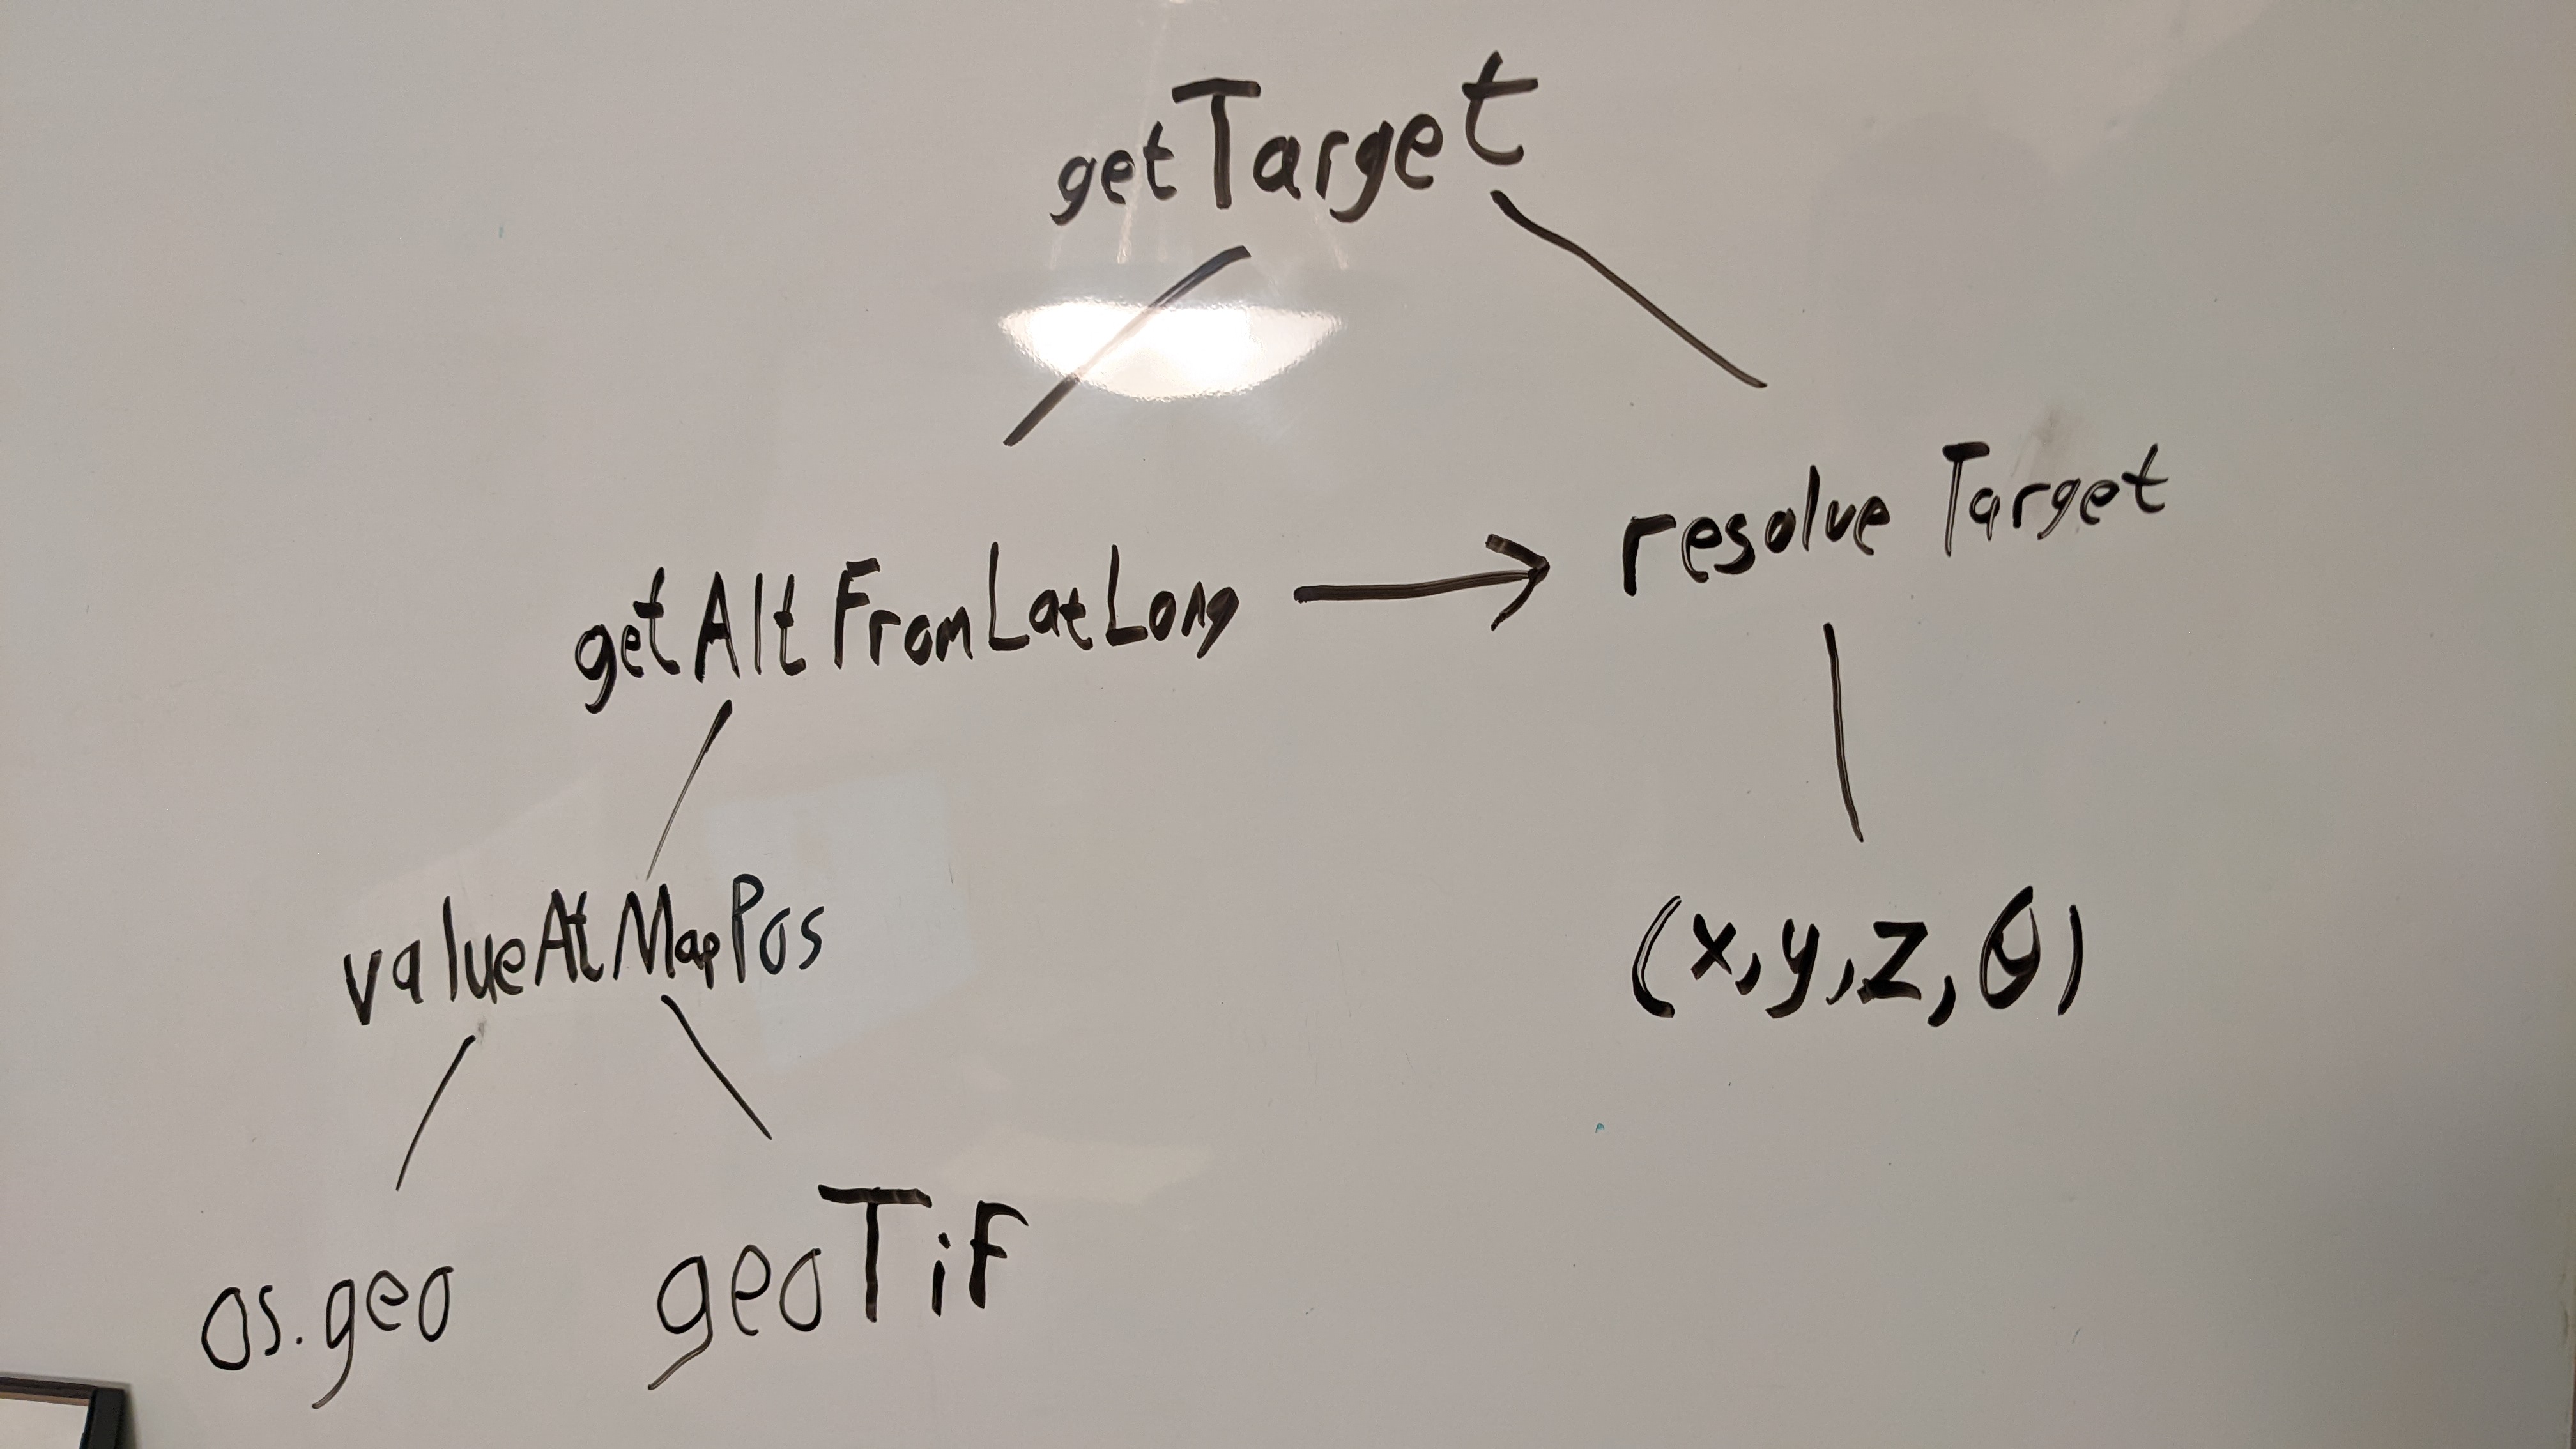 getTarget
getAltFromLatLong → resolve Target
valueAtMapPos
(x,y,z,θ)
os.geo
geoTif